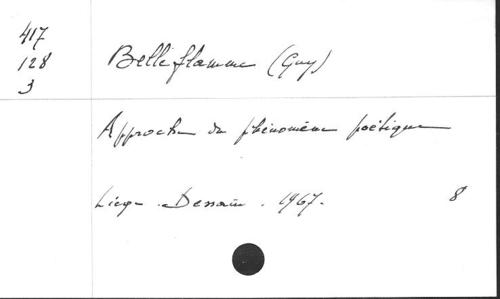 417
128
3
Belleflamme (Guy)
Approche du phénomène poétique
Liège. Dessain. 1967. 8